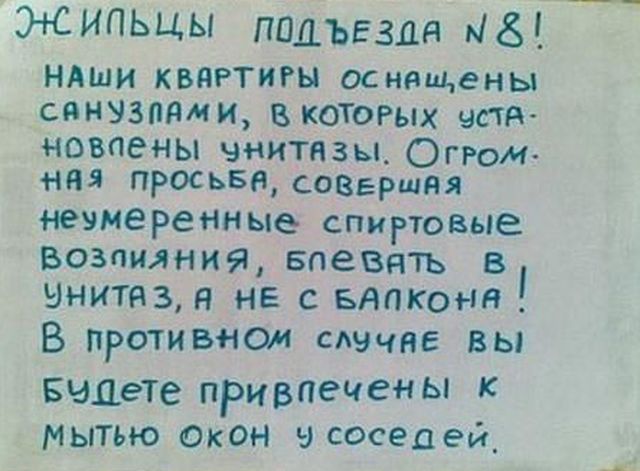 ЖИЛЬЦЫ ПОДЪЕЗДА N 8!
НАШИ КВАРТИРЫ ОСНАЩЕНЫ
САНУЗЛАМИ, В КОТОРЫХ УСТА-
НОВЛЕНЫ УНИТАЗЫ. ОГРОМ-
НАЯ ПРОСЬБА, СОВЕРШАЯ
НЕУМЕРЕННЫЕ СПИРТОВЫЕ
ВОЗЛИЯНИЯ, БЛЕВАТЬ В
УНИТАЗ, А НЕ С БАЛКОНА!
В ПРОТИВНОМ СЛУЧАЕ ВЫ
БУДЕТЕ ПРИВЛЕЧЕНЫ К
МЫТЬЮ ОКОН У СОСЕДЕЙ.